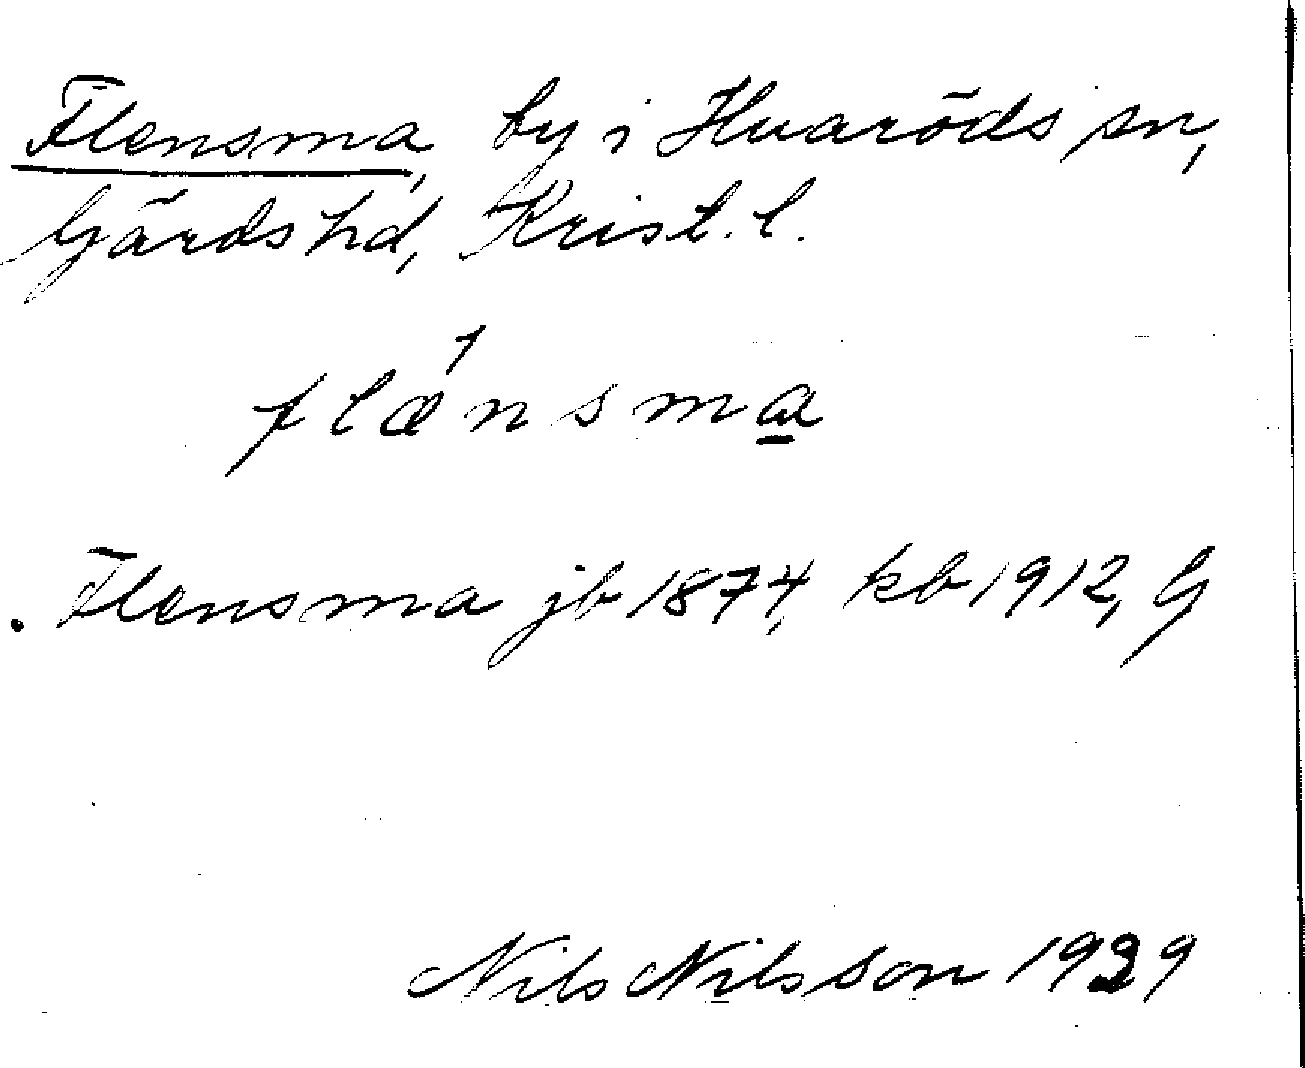 Flensma, by i Huaröds sn,
Gärds hd, Krist. l.
flǽnsma̲
. Flensma jb 1874, kb 1912, G
Nils Nilsson 1929